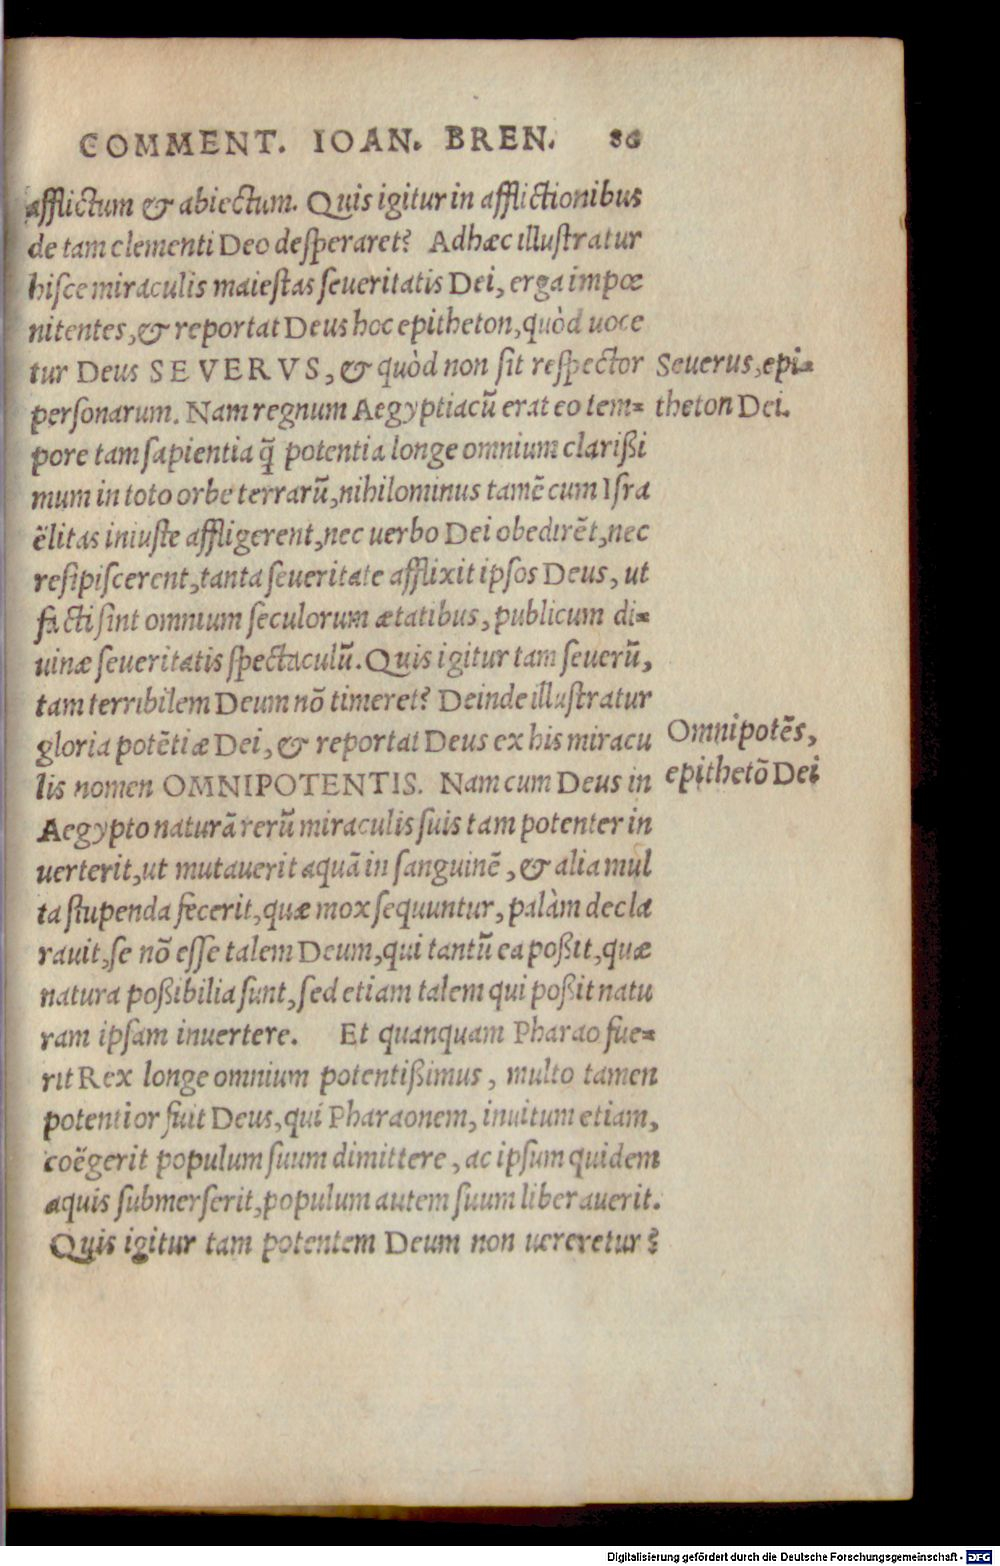 COMMENT. IOAN. BREN. 86
afflictum & abiectum. Quis igitur in afflictionibus
de tam clementi Deo desperaret? Adhæc illustratur
hisce miraculis maiestas seueritatis Dei, erga impœ
nitentes, & reportat Deus hoc epitheton, quòd uoce
tur Deus SEVERVS, & quòd non sit respector
personarum. Nam regnum Aegyptiacū erat eo tem=
pore tam sapientia q̃ potentia longe omnium clarißi
mum in toto orbe terrarū, nihilominus tamē cum Isra
ëlitas iniuste affligerent, nec uerbo Dei obedirēt, nec
resipiscerent, tanta seueritate afflixit ipsos Deus, ut
facti sint omnium seculorum ætatibus, publicum di=
uinæ seueritatis spectaculū. Quis igitur tam seuerū,
tam terribilem Deum nō timeret? Deinde illustratur
gloria potētiæ Dei, & reportat Deus ex his miracu
lis nomen OMNIPOTENTIS. Nam cum Deus in
Aegypto naturā rerū miraculis suis tam potenter in
uerterit, ut mutauerit aquā in sanguinē, & alia mul
ta stupenda fecerit, quæ mox sequuntur, palàm decla
rauit, se nō esse talem Deum, qui tantū ea poßit, quæ
natura poßibilia sunt, sed etiam talem qui poßit natu
ram ipsam inuertere. Et quanquam Pharao fue=
rit Rex longe omnium potentißimus, multo tamen
potentior fuit Deus, qui Pharaonem, inuitum etiam,
coëgerit populum suum dimittere, ac ipsum quidem
aquis submerserit, populum autem suum liberauerit.
Quis igitur tam potentem Deum non uereretur?
Seuerus, epi=
theton Dei.
Omnipotēs,
epithetō Dei
Digitalisierung gefördert durch die Deutsche Forschungsgemeinschaft - DFG